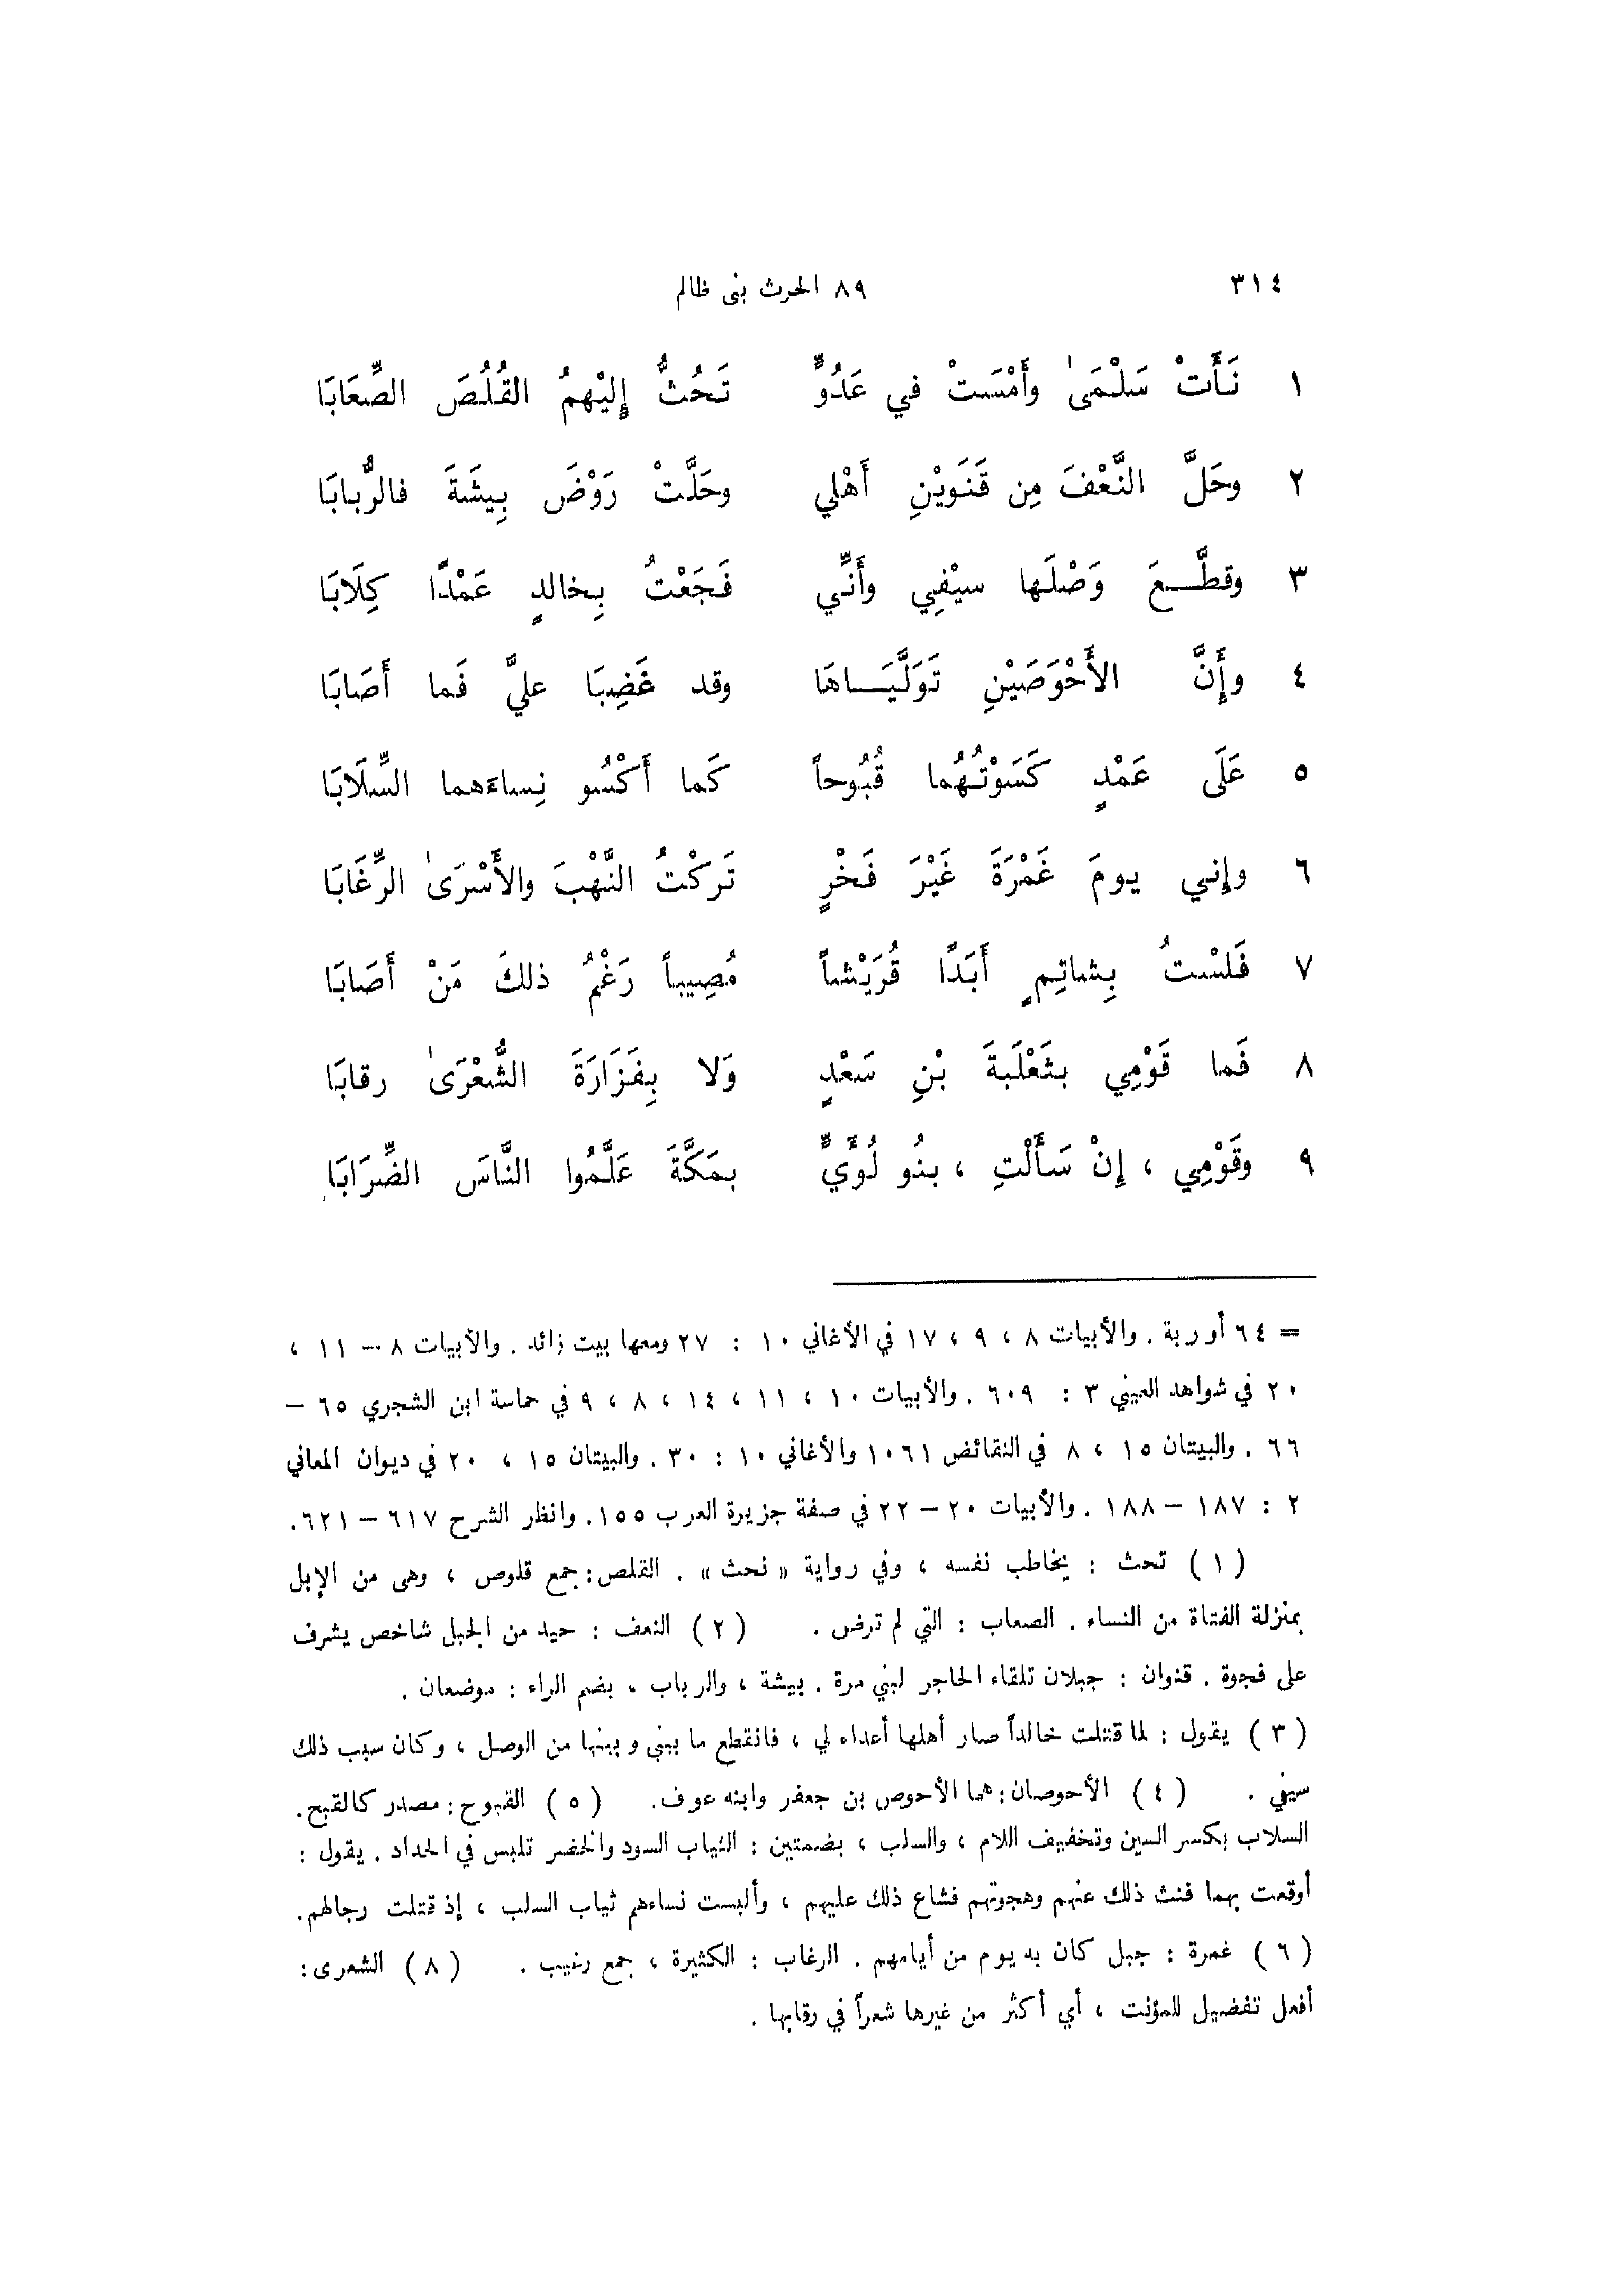 ٣١٤ ٨٩ الحرث بنى ظالم
١ نَأَتْ سَلْمَىٰ وأَمْسَتْ في عَدُوٍّ تَحُثُّ إِليْهِمُ القُلُصَ الصِّعَابَا
٢ وحَلَّ النَّعْفَ مِن قَنَوَيْنِ أَهْلي وحَلَّتْ رَوْضَ بِيشَةَ فالرُّبابَا
٣ وقطَّعَ وَصْلَها سيْفِي وأَنِّي فَجَعْتُ بِخالدٍ عَمْدًا كِلَابَا
٤ وإِنَّ الأَحْوَصَيْنِ تَوَلَّيَاهَا وقد غَضِبَا عليَّ فَما أَصَابَا
٥ عَلَى عَمْدٍ كَسَوْتُهُما قُبُوحاً كَما أَكْسُو نِساءَهما السِّلَابَا
٦ وإِني يومَ غَمْرَةَ غَيْرَ فَخْرٍ تَرَكْتُ النَّهْبَ والأَسْرَىٰ الرِّغَابَا
٧ فَلسْتُ بِشاتِمٍ أَبَدًا قُرَيْشاً مُصِيباً رَغْمُ ذلكَ مَنْ أَصَابَا
٨ فَما قَوْمِي بثَعْلَبةَ بْنِ سَعْدٍ وَلا بِفَزَارَةَ الشُّعْرَىٰ رقابَا
٩ وقَوْمِي ، إِنْ سَأَلْتِ ، بنُو لُؤَيٍّ بمَكَّةَ عَلَّمُوا النَّاسَ الضِّرَابَا
= ٦٤ أوربة . والأبيات ٨ ، ٩ ، ١٧ في الأغاني ١٠ : ٢٧ ومعها بيت زائد . والأبيات ٨ – ١١ ،
٢٠ في شواهد العيني ٣ : ٦٠٩ . والأبيات ١٠ ، ١١ ، ١٤ ، ٨ ، ٩ في حماسة ابن الشجري ٦٥ –
٦٦ . والبيتان ١٥ ، ٨ في النقائض ١٠٦١ والأغاني ١٠ : ٣٠ . والبيتان ١٥ ، ٢٠ في ديوان المعاني
٢ : ١٨٧ – ١٨٨ . والأبيات ٢٠ – ٢٢ في صفة جزيرة العرب ١٥٥ . وانظر الشرح ٦١٧ – ٦٢١ .
( ١ ) تحث : يخاطب نفسه ، وفي رواية « نحث » . القلص : جمع قلوص ، وهى من الإبل
بمنزلة الفتاة من النساء . الصعاب : التي لم ترض . ( ٢ ) النعف : حيد من الجبل شاخص يشرف
على فجوة . قنوان : جبلان تلقاء الحاجر لبني مرة . بيشة ، والرباب ، بضم الراء : موضعان .
( ٣ ) يقول : لما قتلت خالداً صار أهلها أعداء لي ، فانقطع ما بيني وبينها من الوصل ، وكان سبب ذلك
سيفي . ( ٤ ) الأحوصان : هما الأحوص بن جعفر وابنه عوف . ( ٥ ) القبوح : مصدر كالقبح .
السلاب بكسر السين وتخفيف اللام ، والسلب ، بضمتين : الثياب السود والخضر تلبس في الحداد . يقول :
أوقعت بهما فنث ذلك عنهم وهجوتهم فشاع ذلك عليهم ، وألبست نساءهم ثياب السلب ، إذ قتلت رجالهم .
( ٦ ) غمرة : جبل كان به يوم من أيامهم . الرغاب : الكثيرة ، جمع رغيب . ( ٨ ) الشعرى :
أفعل تفضيل للمؤنث ، أي أكثر من غيرها شعراً في رقابها .